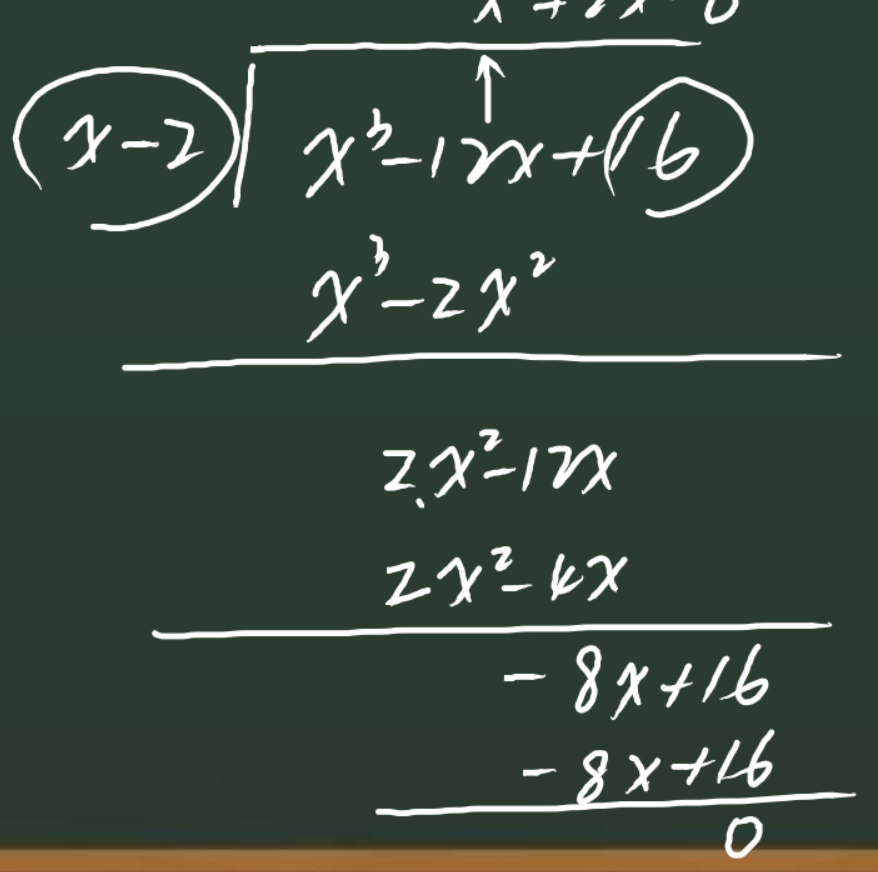 x-2 x³-12x+16
x³-2x²
2x²-12x
2x²-4x
-8x+16
-8x+16
0